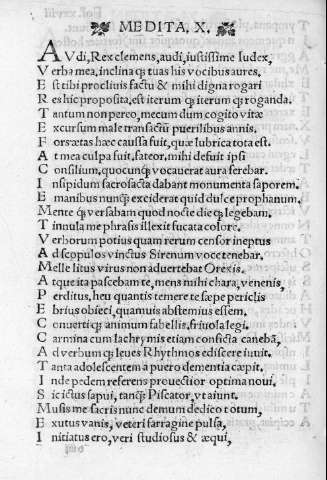 MEDITA. X.
AVdi, Rex clemens, audi, iustissime Iudex,
Verba mea, inclina q; tuas his vocibus aures.
Est tibi procliuis factu & mihi digna rogari
Res hic proposita, est iterum q; iterum q; roganda.
Tantum non perco, mecum dum cogito vitæ
Excursum male transactū puerilibus annis.
Forsæ tas hæc caussa fuit, quæ lubrica tota est.
At mea culpa fuit, fateor, mihi defuit ipsi
Consilium, quocunq; vocauerat aura ferebar.
Insipidum sacrosacta dabant monumenta saporem.
E manibus nunq; exciderat quid dulce prophanum.
Mente q; versabam quod nocte die q; legebam.
Tinnula me phrasis illexit fucata colore.
Verborum potius quam rerum censor ineptus
Ad scopulos vinctus Sirenum voce tenebar.
Melle litus virus non aduertebat Orexis.
Atque ita pascebam te, mens mihi chara, venenis,
Perditus, heu quantis temere te sæpe periclis
Ebrius obieci, quamuis abstemius essem.
Conuerti q; animum fabellis, friuola legi.
Carmina cum lachrymis etiam conficta canebā,
Ad verbum q; leues Rhythmos ediscere iuuit.
Tanta adolescentem a puero dementia cæpit.
Inde pedem referens prouectior optima noui.
Sic ictus sapui, tanq; Piscator, vt aiunt.
Musis me sacris nunc demum dedico totum,
Exutus vanis, veteri farragine pulsa,
Initiatus ero, veri studiosus & æqui,